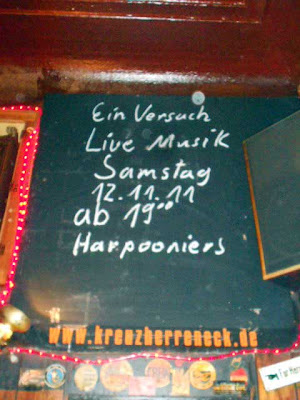 Ein Versuch
Live Musik
Samstag
12.11.11
ab 19⁰⁰
Harpooniers
www.kreuzherreneck.de